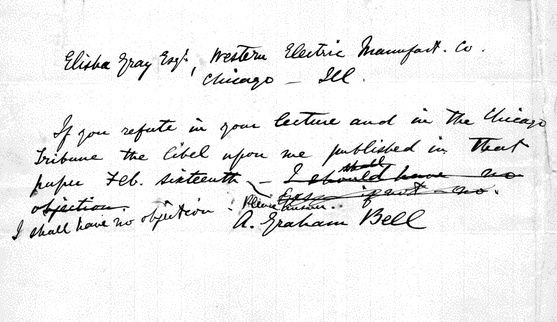 Elisha Gray Esq., Western Electric Manufact. Co.
Chicago — Ill.
If you refute in your lecture and in the Chicago
Tribune the libel upon me published in that
paper Feb. sixteenth — I should shall have no
objection. if not — no.
I shall have no objection. Please answer.
A. Graham Bell